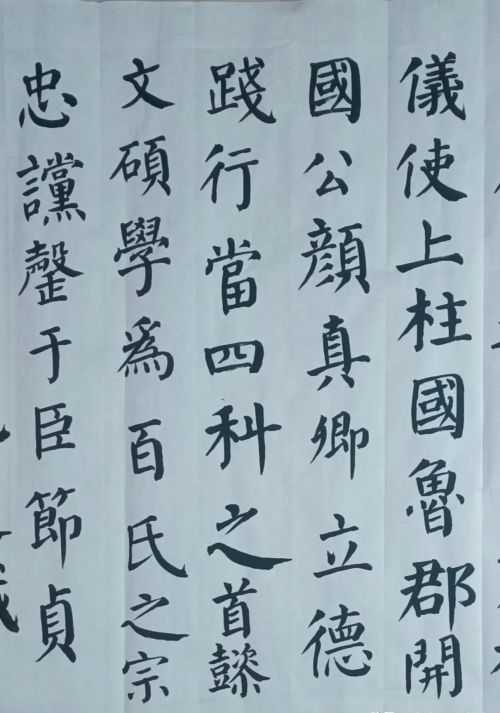 儀使上柱國魯郡開
國公顔真卿立德
踐行當四科之首懿
文碩學爲百氏之宗
忠讜罄于臣節貞